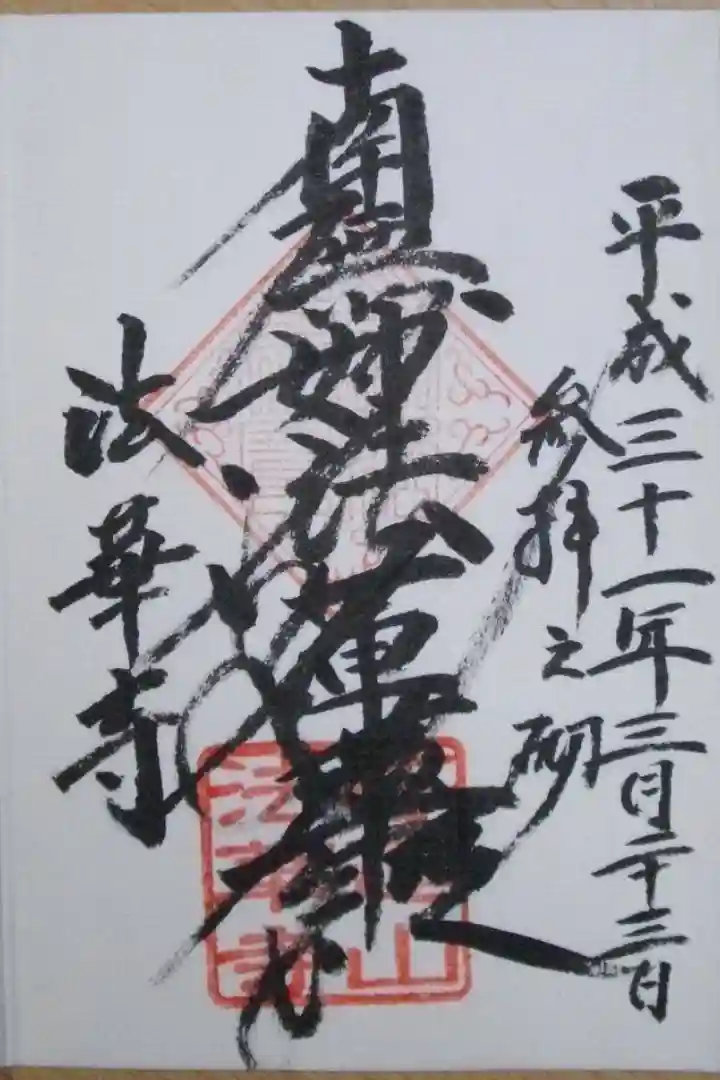 平成三十一年三月二十三日
参拝之砌
南無妙法蓮華経
法華寺
山
法華寺